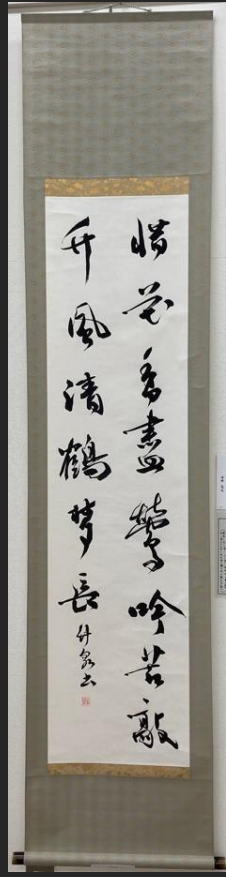 惜花春盡鶯吟苦敲
竹風清鶴夢長 竹泉書